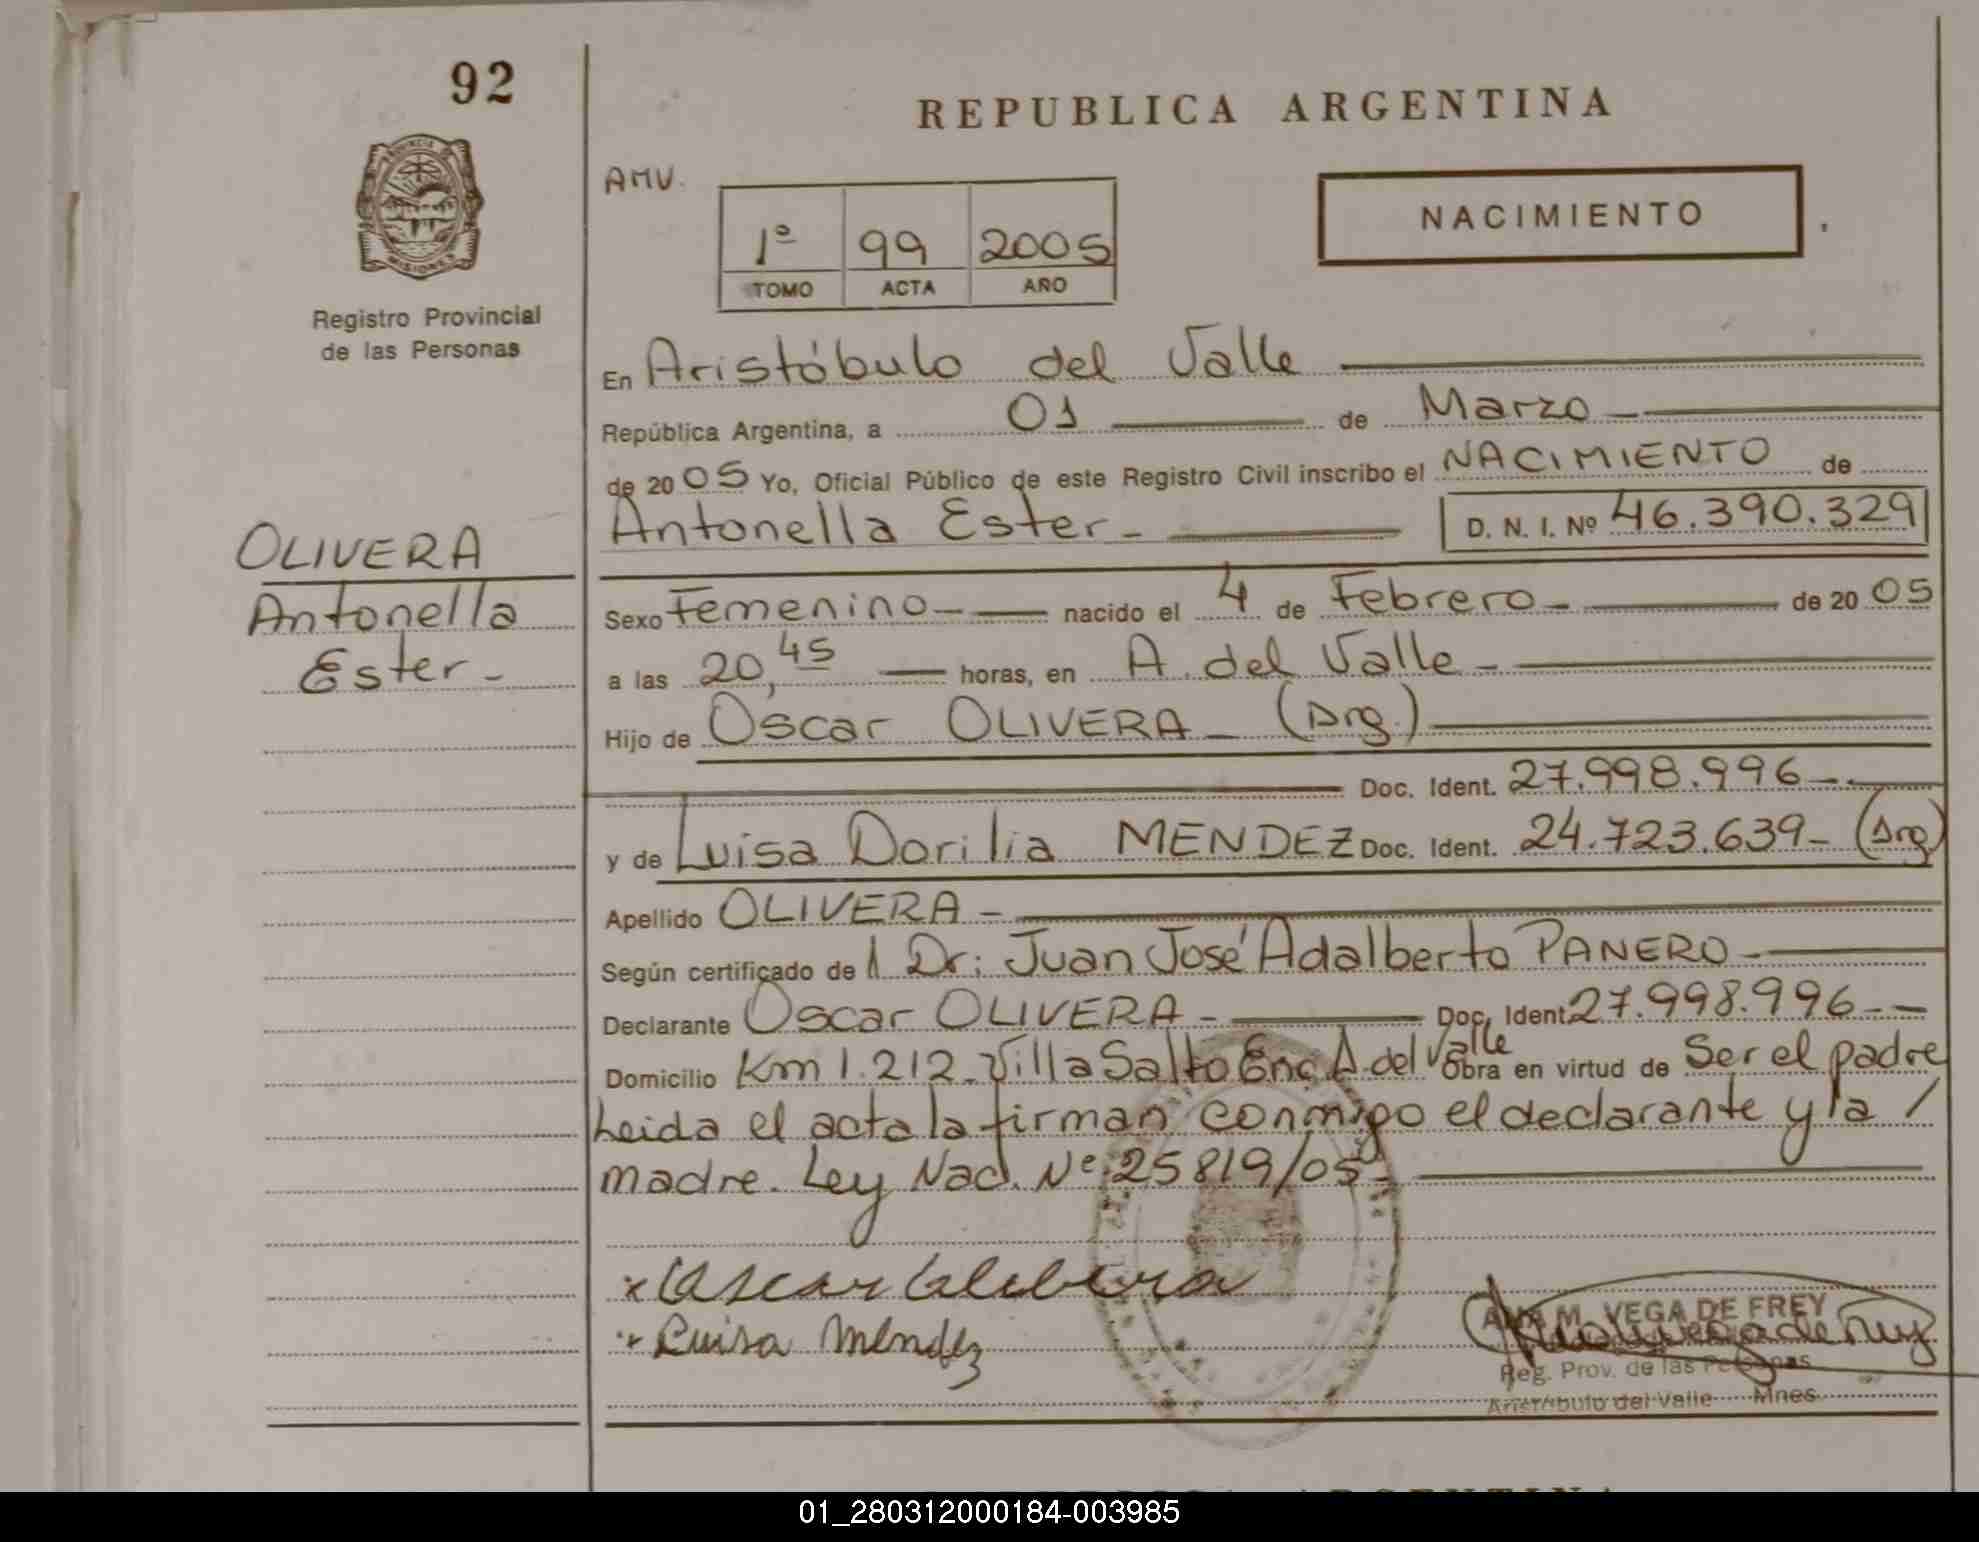 92
REPUBLICA ARGENTINA
PROVINCIA DE
MISIONES
Registro Provincial
de las Personas
AMV.
1º 99 2005
TOMO ACTA AÑO
NACIMIENTO
En Aristóbulo del Valle
República Argentina, a 01 de Marzo
de 2005 Yo, Oficial Público de este Registro Civil inscribo el NACIMIENTO de
Antonella Ester- D. N. I. Nº 46.390.329
OLIVERA
Antonella
Ester-
Sexo Femenino- nacido el 4 de Febrero- de 2005
a las 20,45 horas, en A. del Valle-
Hijo de Oscar OLIVERA- (Arg.)
Doc. Ident. 27.998.996-.
y de Luisa Dorilia MENDEZ Doc. Ident. 24.723.639- (Arg)
Apellido OLIVERA-
Según certificado de l Dr: Juan José Adalberto PANERO-
Declarante Oscar OLIVERA- Doc. Ident. 27.998.996--
Domicilio Km 1.212-Villa Salto Enc. A. del Valle Obra en virtud de Ser el padre
Leida el acta la firman conmigo el declarante y la /
madre. Ley Nac. Nº 25819/05-
x Oscar Olivera
x Luisa Mendez
ANA M. VEGA DE FREY
Reg. Prov. de las Personas
Aristóbulo del Valle Mnes.
REPUBLICA ARGENTINA
01_280312000184-003985